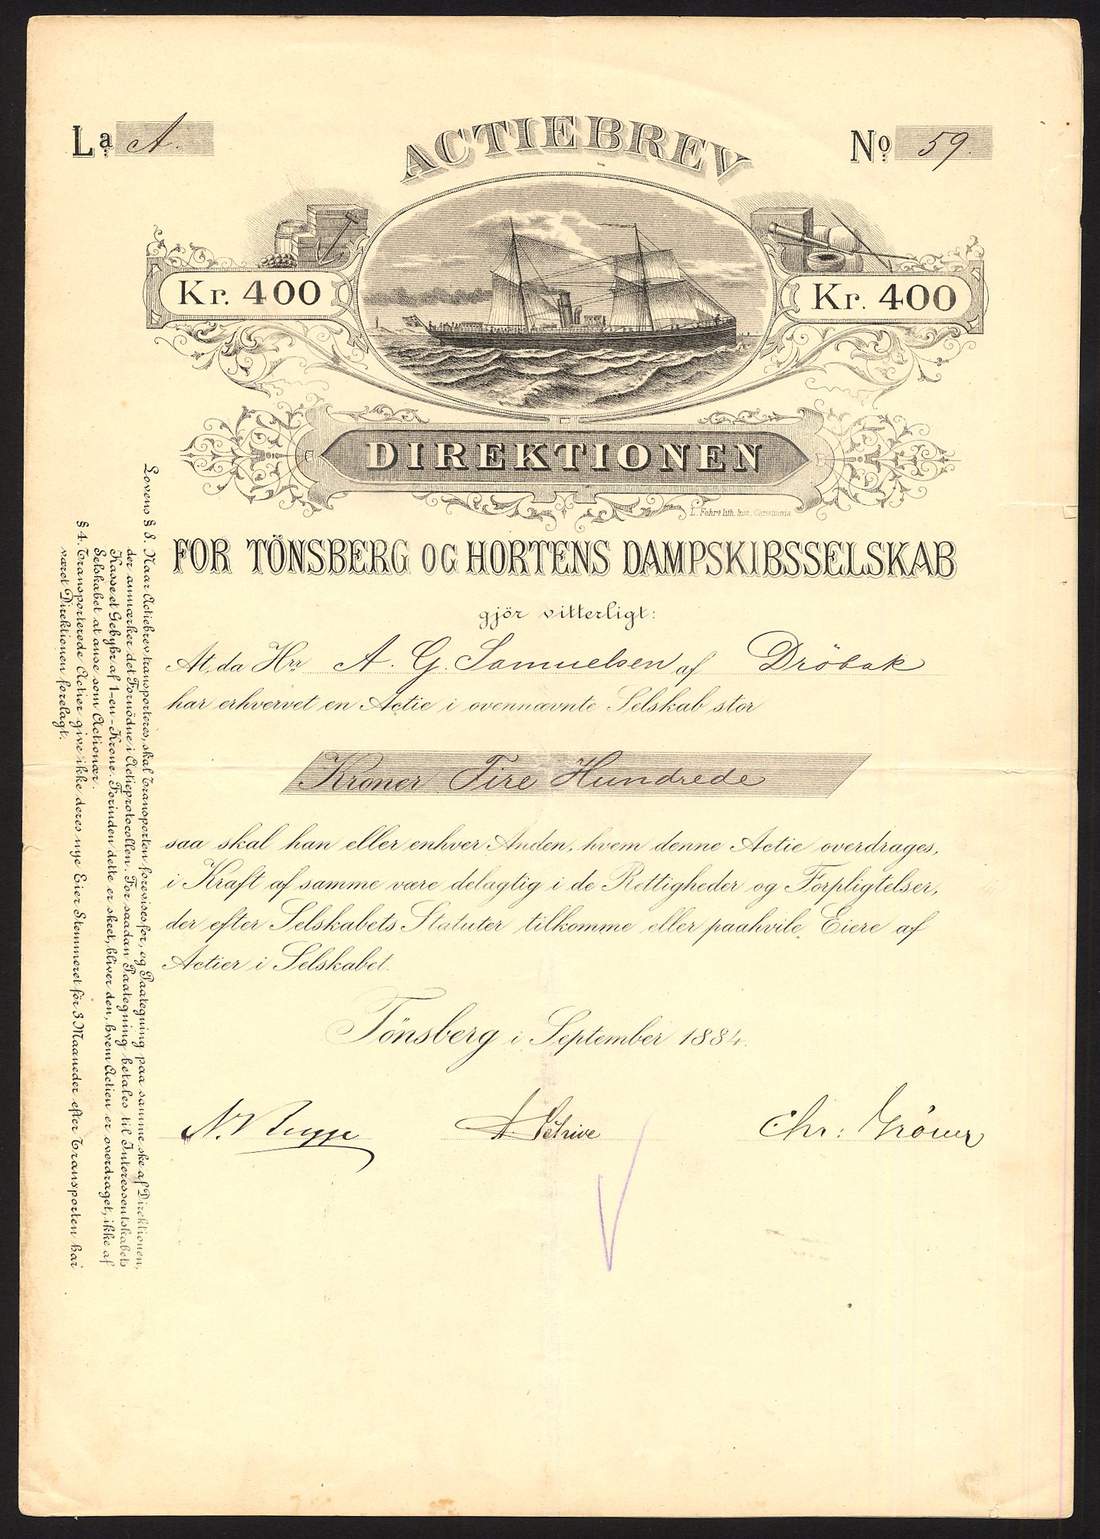 La. A.
No. 59.
ACTIEBREV
Kr. 400
Kr. 400
DIREKTIONEN
L. Fehrs lith. Inst. Christiania
FOR TÖNSBERG OG HORTENS DAMPSKIBSSELSKAB
gjör vitterligt:
At, da Hrr A. G. Samuelsen af Dröbak
har erhvervet en Actie i ovennævnte Selskab stor
Kroner Fire Hundrede
saa skal han eller enhver Anden, hvem denne Actie overdrages,
i Kraft af samme være delagtig i de Rettigheder og Forpligtelser,
der efter Selskabets Statuter tilkomme eller paahvile Eiere af
Actier i Selskabet.
Tönsberg i September 1884.
Chr: Gröner
Lovens § 3. Naar Actiebrev transporteres, skal Transporten forevises for, og Paategning paa samme ske af Direktionen,
der anmærker det Fornödne i Actieprotocollen. For saadan Paategning betales til Interessentskabets
Kasse et Gebyhr af 1 - en - Krone. Forinden dette er skeet, bliver den, hvem Actien er overdraget, ikke af
Selskabet at anse som Actionær.
§ 4. Transporterede Actier give ikke deres nye Eier Stemmeret för 3 Maaneder efter Transporten har
været Direktionen forelagt.